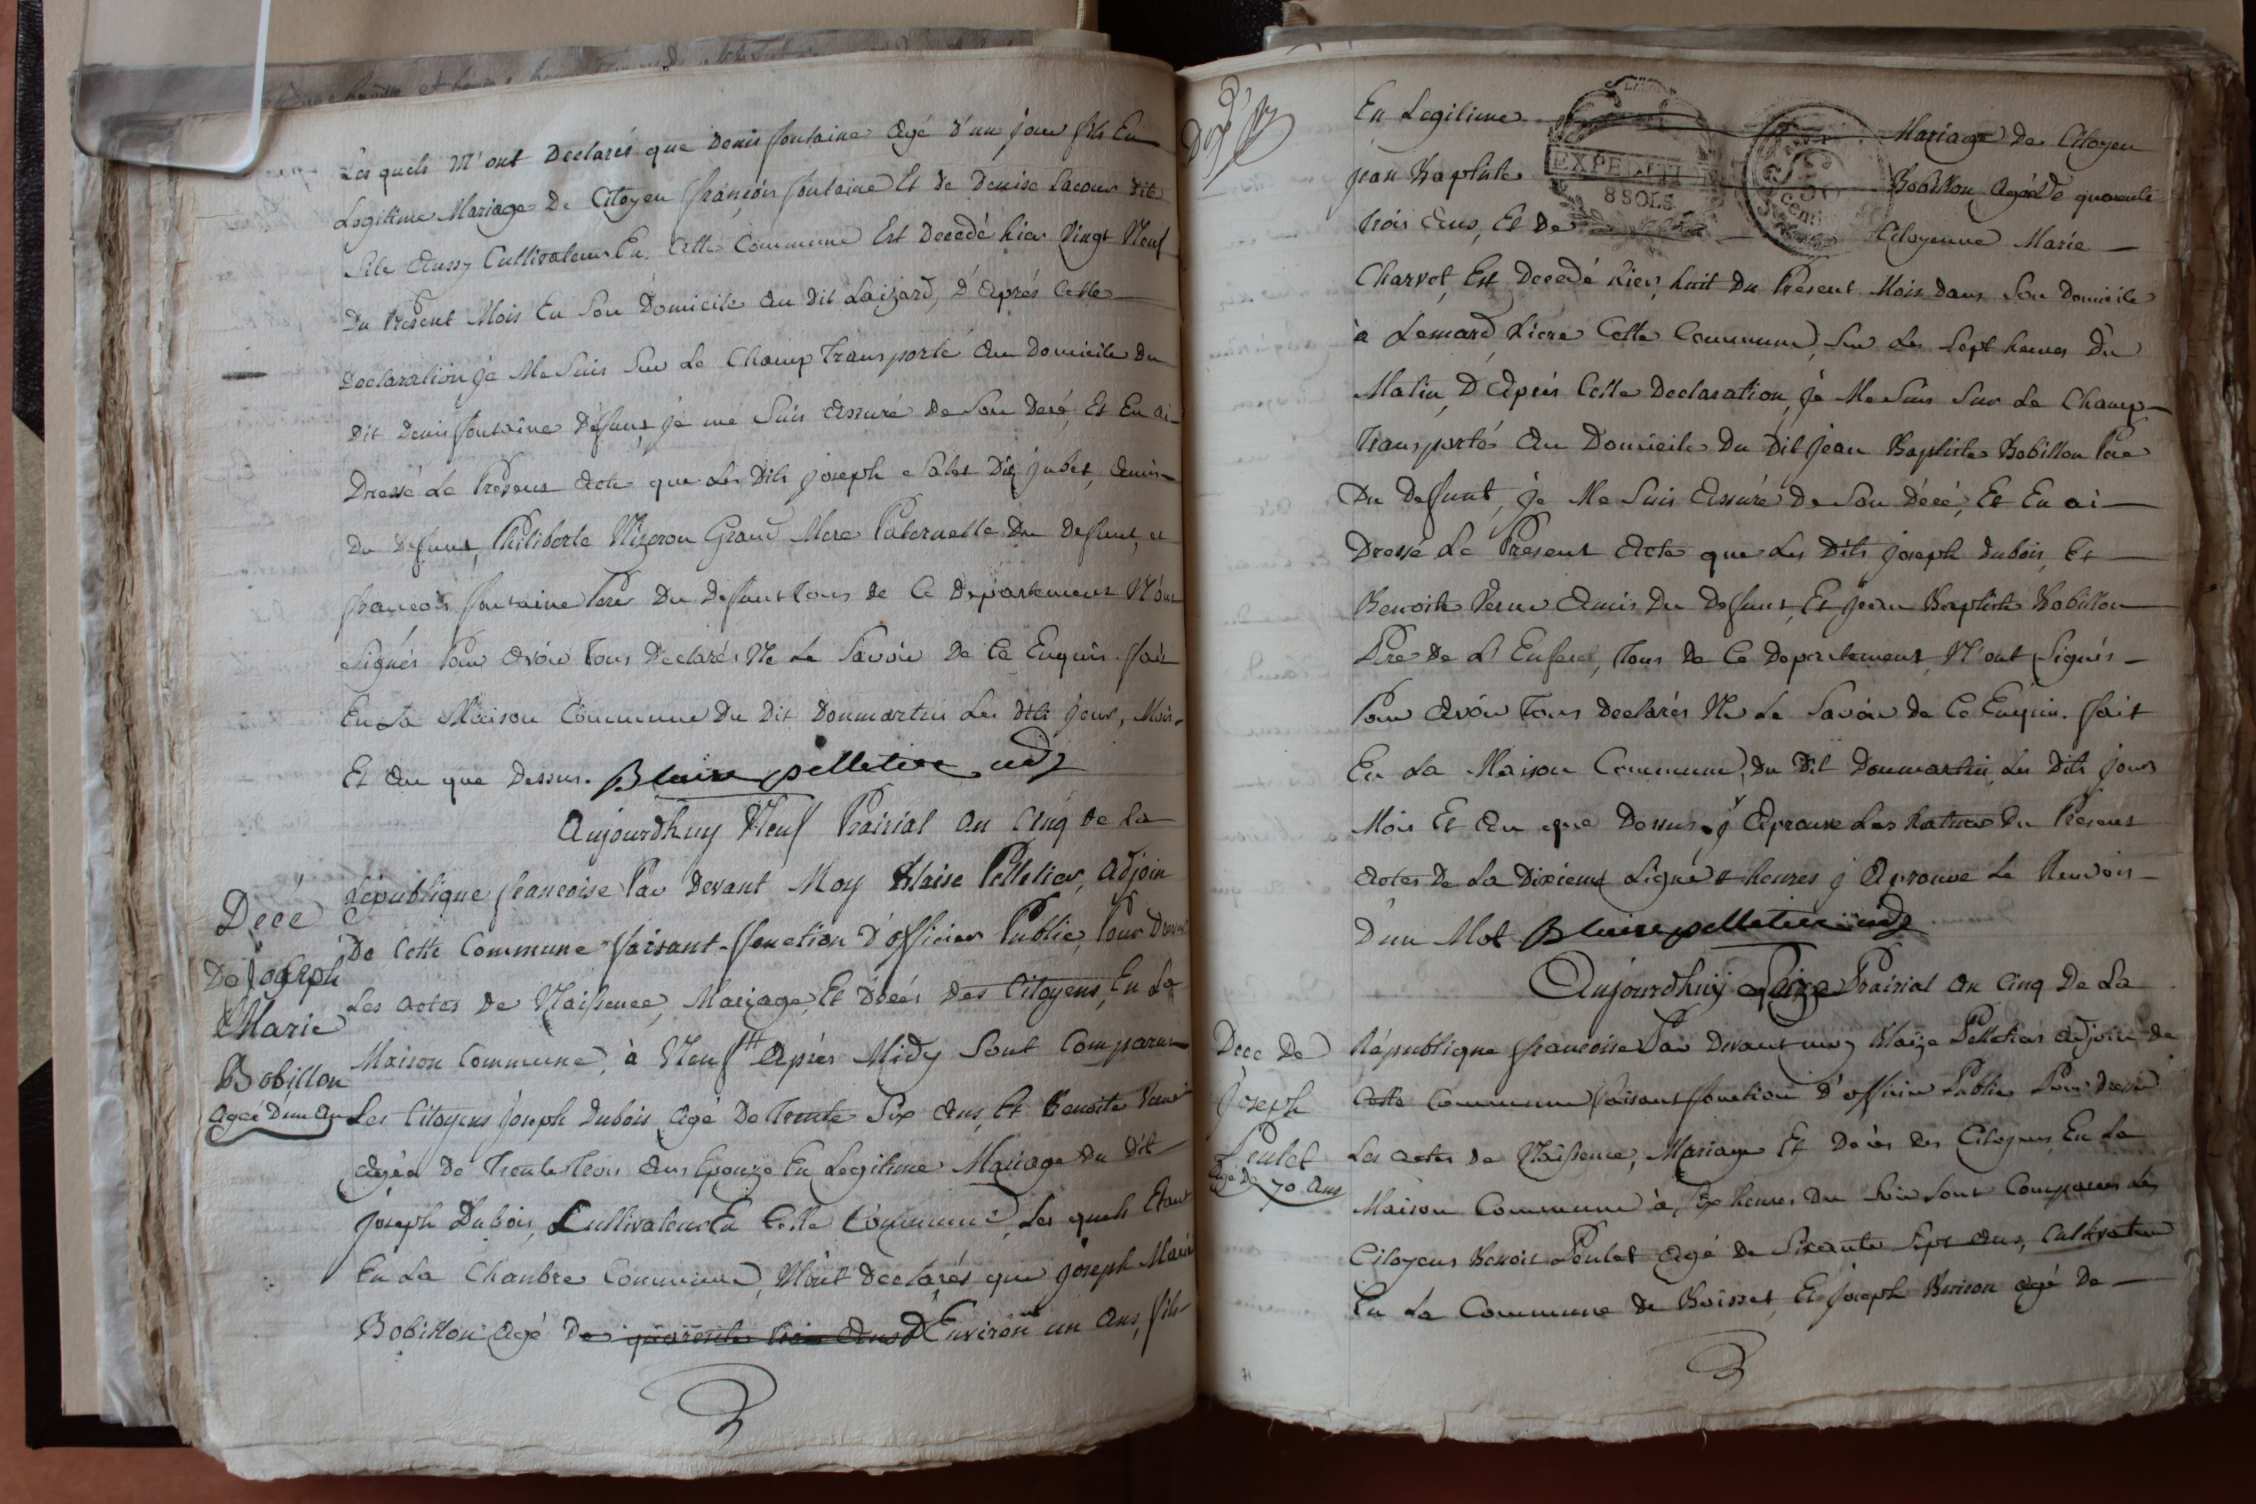 Les quels M'ont Declarés que Denis fontaine Agé d'un jour fils En
Legitime Mariage De Citoyen françois fontaine Et de Denise Lacour dit
Aussy Cultivateur En Cette Commune Est Decedé hier Vingt Neuf
Du Present Mois En Son Domicile au dit Laizard, D'Aprés Cette
Declaration je Me Suis Sur Le Champ Transporté Au Domicile Du
Dit Denis fontaine Defunt je me Suis Assuré De Son Decé, Et En ai
Dressé Le Present Acte que Les Dits joseph Dit jubet, Amis
Du Defunt, Philiberte Grand Mere Paternelle Du Defunt, et
françois fontaine Pere Du Defunt tous de Ce Departement N'ont
Signés Pour Avoir Tous Declarés Ne Le Savoir De Ce Enquis. fait
En La Maison Commune Du Dit Donmartin Les Dits jour, Mois
Et An que Dessus. Blaise pelletier adj
Aujourdhuy Neuf Prairial An Cinq De La
Decé
De joseph
Marie
Bobillon
agée D'un An
République francoise Par Devant Moy Blaise Pelletier, Adjoin
De Cette Commune faisant fonction D'officier Public, Pour Dresser
Les actes De Naissence, Mariage, Et Décés Des Citoyens, En La
Maison Commune, à Neuf H Après Midy Sont Comparus
Les Citoyens joseph Dubois Agé De Trente Six Ans, Et Benoite Verne
Agéé De Trente Trois Ans Epouze En Legitime Mariage Du Dit
joseph Dubois, Cultivateur En Cette Commune, Les quels Etant
En La Chanbre Commune, M'ont Declarés que joseph Marie
Bobillon Agé De quarente trois Ans D'Environ un Ans, fils
En Legitime Mariage De Citoyen
jean Baptiste Bobillon, Agé De quarente
Trois Ans, Et De Citoyenne Marie
EXPEDITION
8 SOLS
50
Cent
Charvet, Est Decedé hier, huit Du Present Mois Dans Son Domicile
à Lemard Riere Cette Commune, Sur Les Sept heures Du
Matin, D'Aprés Cette Declaration, je Me Suis Sur Le Champ
Transporté Au Domicile Du Dit jean Baptiste Bobillon Pere
Du Defunt, je Me Suis Assuré De Son Décé, Et En ai
Dressé Le Present Acte que Les Dits joseph Dubois, Et
Benoite Verne Amis Du Defunt, Et jean Baptiste Bobillon
Pere De L'Enfent, Tous De Ce Departement, N'ont Signés
Pour Avoir Tous Declarés Ne Le Savoir De Ce Enquis. fait
En La Maison Commune, Du Dit Donmartin Les Dits jour
Mois Et An que Dessus. j'Aprouve Les Rature Du Present
Actes De La Dixieme Ligne heures j'Aprouve Le Renvois
D'un Mot Blaise pelletier adj
Aujourdhuy Seize Prairial An Cinq De La
Decc De
joseph
Poulet
Agé De 70 Ans
République francoise Par Devant moy Blaize Pelletier Adjoin de
Cette Commune faisant fonction D'officier Public Pour Dresser
Les actes De Naissence, Mariage Et Decés Des Citoyens En La
Maison Commune à Six heures Du Soir Sont Comparus Les
Citoyens Benoit Poulet Agé De Soixante Sept Ans, Cultivateur
En La Commune De Boisset, Et joseph agé De